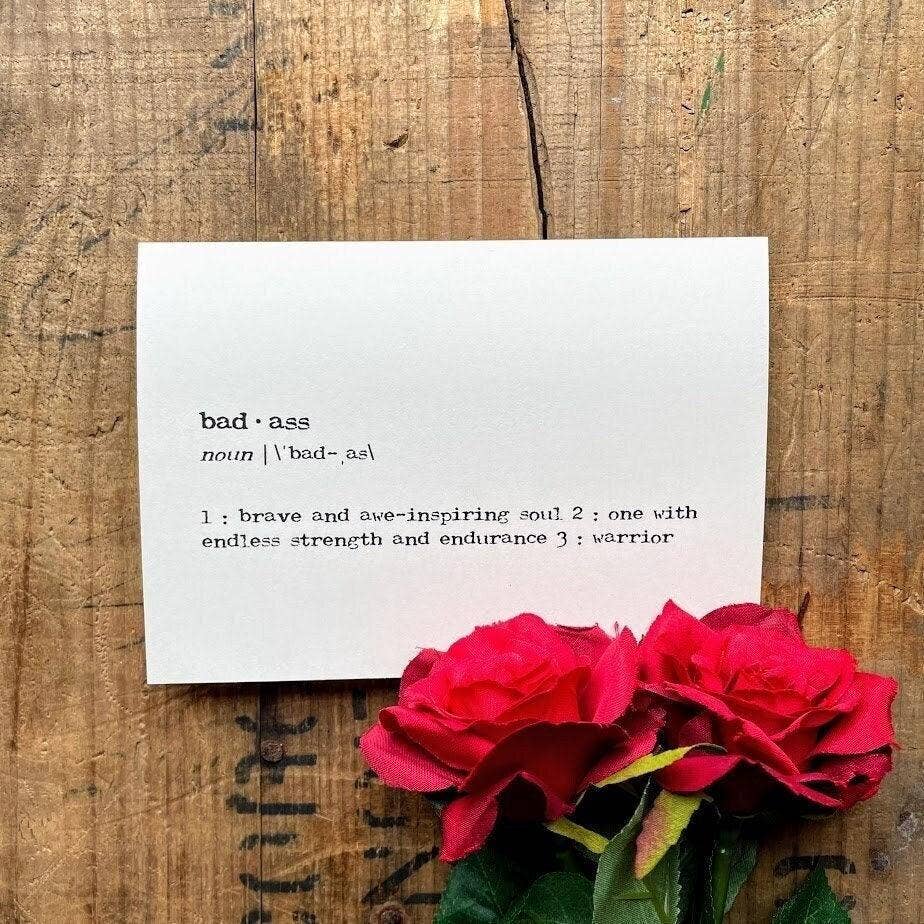 bad · ass
noun | \ˈbad-ˌas\
1 : brave and awe-inspiring soul 2 : one with
endless strength and endurance 3 : warrior